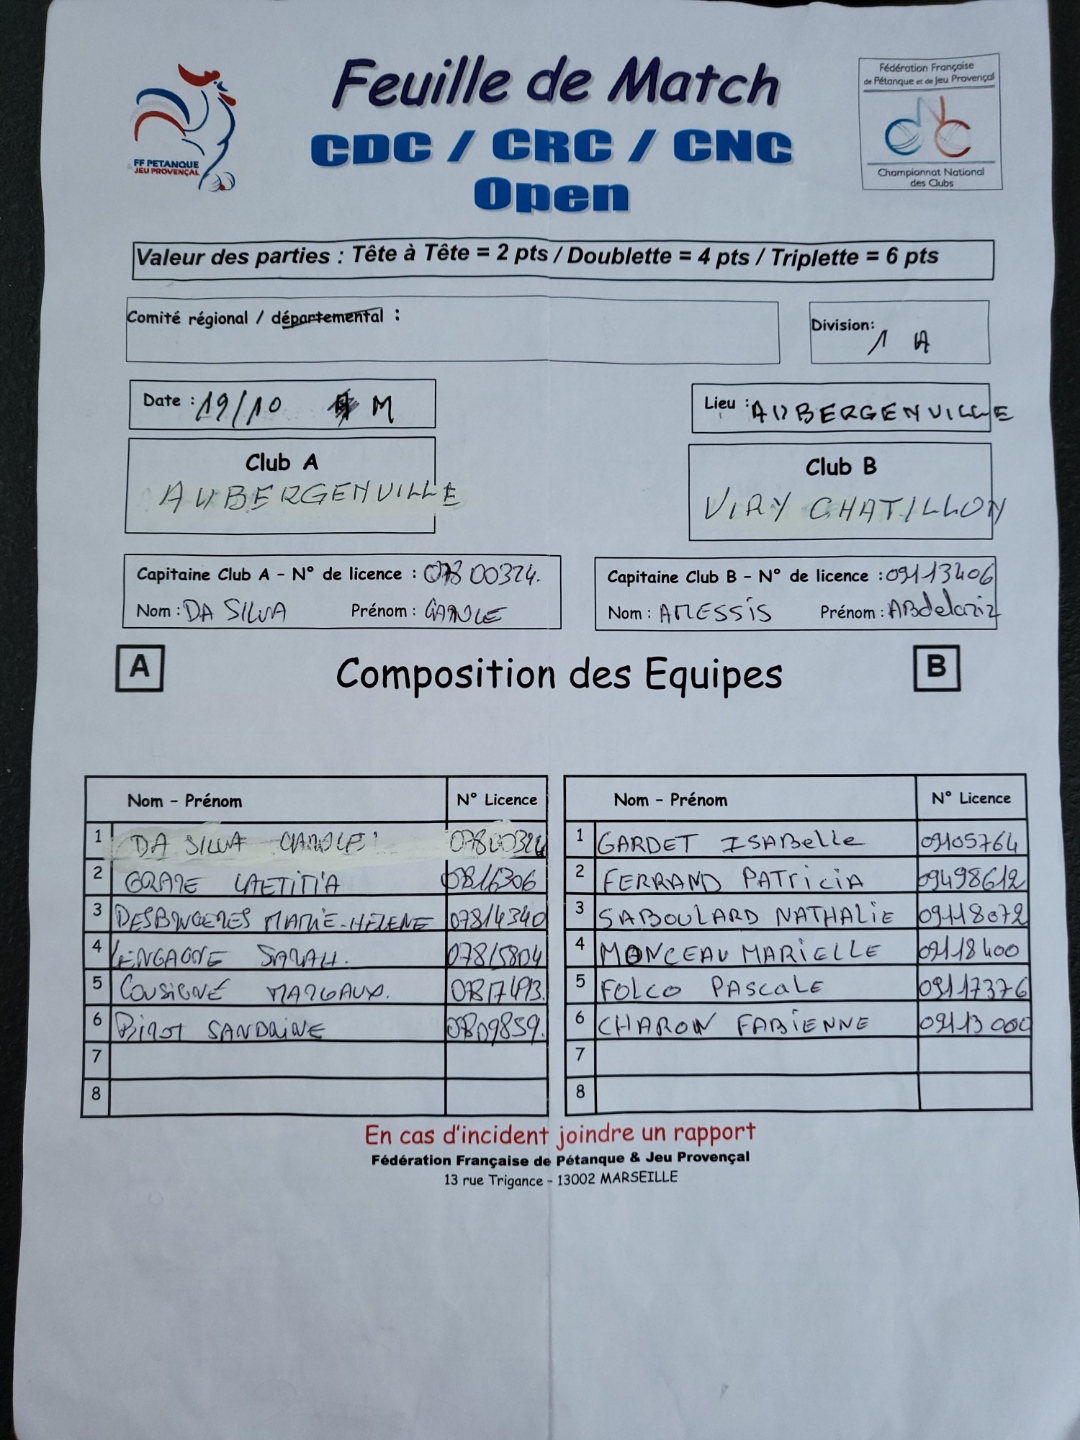 Feuille de Match
CDC / CRC / CNC
Open
FF PETANQUE
& JEU PROVENÇAL
Fédération Française
de Pétanque et de Jeu Provençal
CNC
Championnat National
des Clubs
Valeur des parties : Tête à Tête = 2 pts / Doublette = 4 pts / Triplette = 6 pts
Comité régional / départemental :
Division: 1 A
Date : 19/10 M
Lieu : AUBERGENVILLE
Club A
AUBERGENVILLE
Club B
VIRY CHATILLON
Capitaine Club A - N° de licence : 07800324.
Nom : DA SILVA Prénom : CAROLE
Capitaine Club B - N° de licence : 09113406
Nom : AMESSIS Prénom : Abdelaziz
A
Composition des Equipes
B
Nom - Prénom N° Licence
1 DA SILVA CAROLE 07800324
2 LAETITIA
3 MARIE-HELENE 07814340
4 SARAH. 07815804
5 COUSIGNÉ MARGAUX. 07817493.
6 SANDRINE 07809859.
7
8
Nom - Prénom N° Licence
1 GARDET ISABelle 09105764
2 FERRAND PATRICIA 09498612
3 SABOULARD NATHALIE 09118072
4 MONCEAU MARIELLE 09118400
5 FOLCO PASCALE 09117376
6 CHARON FABIENNE 09113000
7
8
En cas d'incident joindre un rapport
Fédération Française de Pétanque & Jeu Provençal
13 rue Trigance - 13002 MARSEILLE